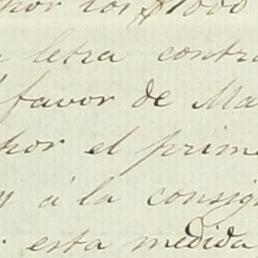 por los $1000
letra contra
favor de Ma
por el prim
y á la consig
esta medida